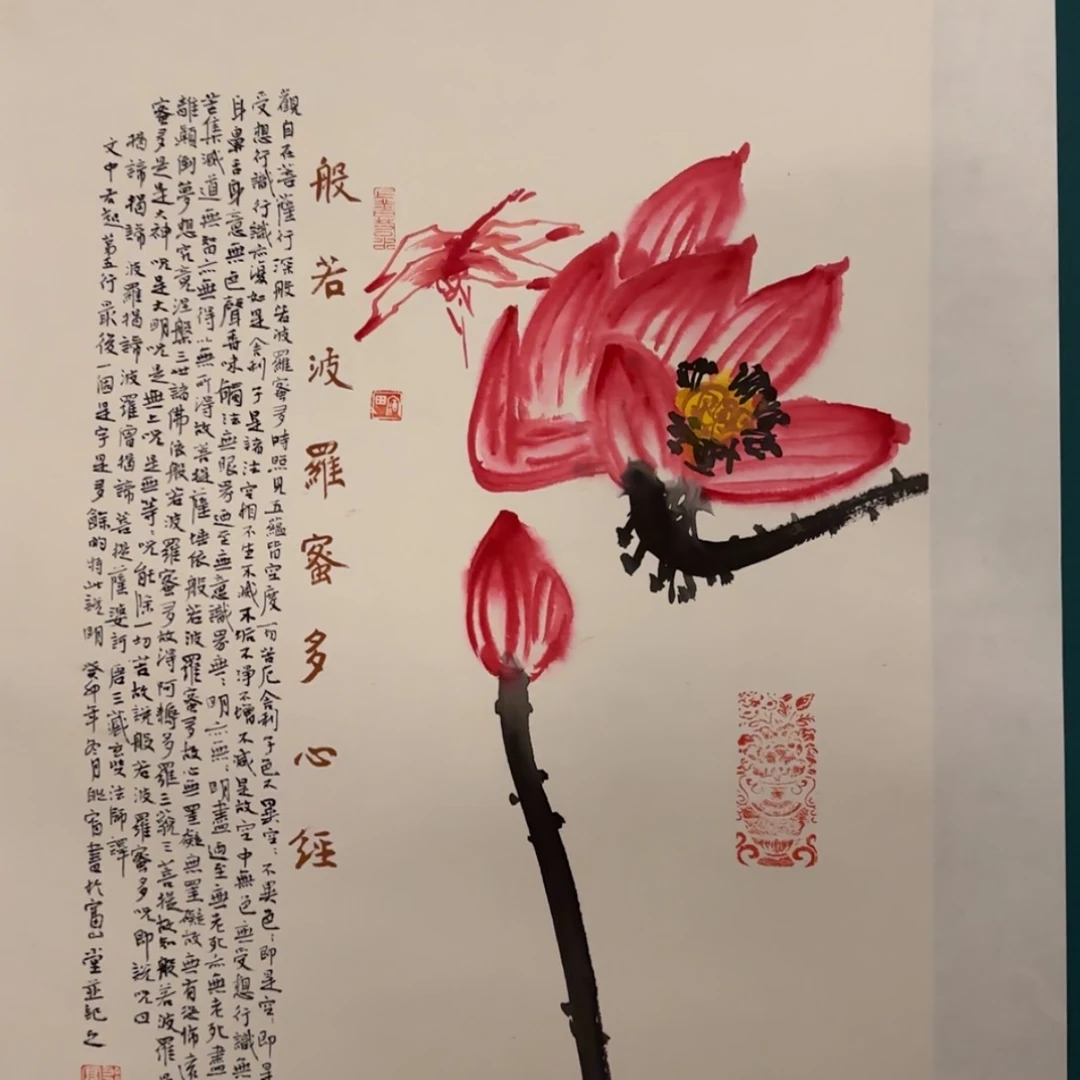 般若波羅蜜多心經
觀自在菩薩行深般若波羅蜜多時照見五蘊皆空度一切苦厄舍利子色不異空:不異色:即是空:即是
受想行識行識亦復如是舍利子是諸法空相不生不滅不垢不淨不增不減是故空中無色無受想行識無
身鼻舌身意無色聲香味觸法無眼界迺至無意識界無:明亦無:明盡迺至無老死亦無老死盡
苦集滅道無智亦無得以無所得故菩提薩埵依般若波羅蜜多故心無罣礙無罣礙故無有恐怖遠
離顛倒夢想究竟涅槃三世諸佛依般若波羅蜜多故得阿耨多羅三藐三菩提故知般若波羅
蜜多是是大神咒是大明咒是無上咒是無等:咒能除一切苦故說般若波羅蜜多咒即說咒曰
揭諦揭諦波羅揭諦波羅僧揭諦菩提薩婆訶唐三藏玄奘法師譯
文中右起第五行最後一個是字是多餘的特此說明癸卯年冬月 甯畫於富 堂並記之